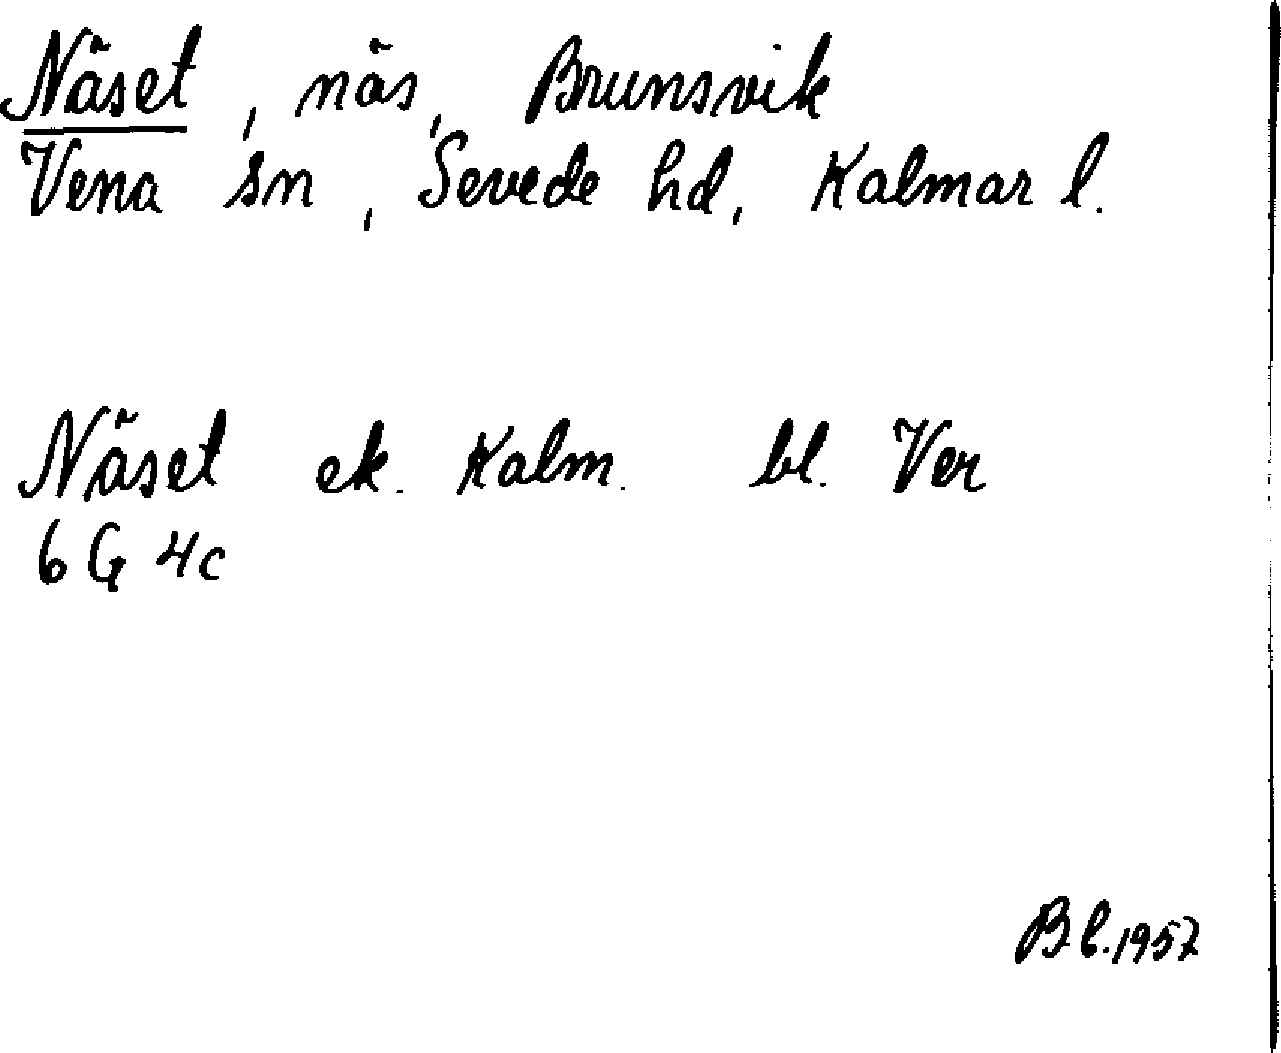 Näset, näs, Brunsvik
Vena sn, Sevede hd, Kalmar l.
Näset ek. Kalm. bl. Ver
6 G 4c
Bl. 1957